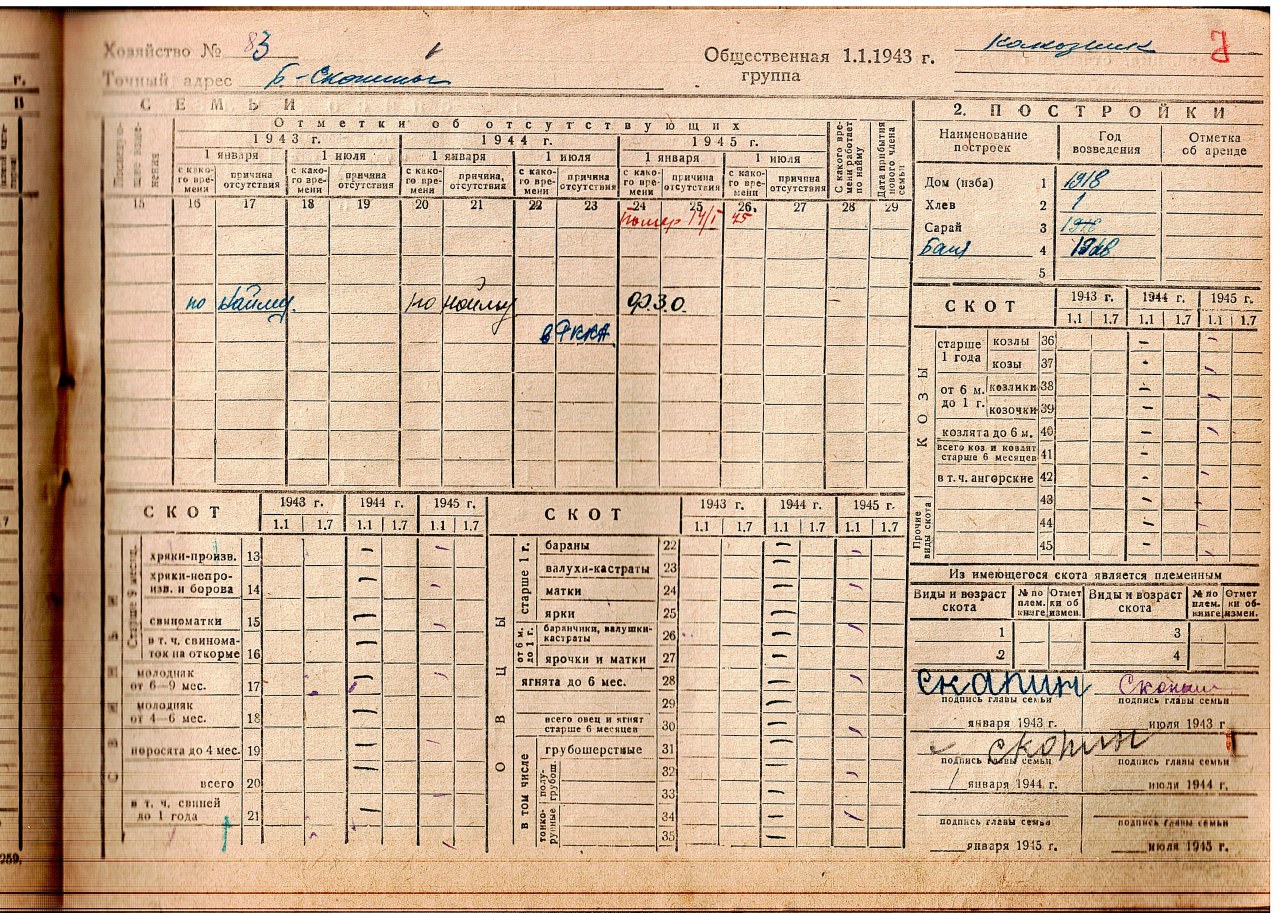 Хозяйство № 83
Общественная 1.1.1943 г.
группа
колхозник
Точный адрес Б-Скопины
СЕМЬИ
Отметки об отсутствующих
1943 г. 1944 г. 1945 г.
1 января 1 июля 1 января 1 июля 1 января 1 июля
с како-го вре-мени причина отсутствия с како-го вре-мени причина отсутствия с како-го вре-мени причина, отсутствия с како-го вре-мени причина отсутствия с како-го вре-мени причина отсутствия с како-го вре-мени причина отсутствия
С какого вре-мени работает по найму
Дата прибытия нового члена семьи
15 16 17 18 19 20 21 22 23 24 25 26 27 28 29
помер 17/I 45
по найму. по найму ФЗО.
в РККА
2. ПОСТРОЙКИ
Наименование построек Год возведения Отметка об аренде
Дом (изба) 1 1918
Хлев 2
Сарай 3
Баня 4
5
СКОТ 1943 г. 1944 г. 1945 г.
1.1 1.7 1.1 1.7 1.1 1.7
КОЗЫ
старше 1 года козлы 36
козы 37
от 6 м. до 1 г. козлики 38
козочки 39
козлята до 6 м. 40
всего коз и козлят старше 6 месяцев 41
в т. ч. ангорские 42
Прочие виды скота
43
44
45
Из имеющегося скота является племенным
Виды и возраст скота № по плем. книге Отмет ки об измен. Виды и возраст скота № по плем. книге Отмет ки об-измен.
1 3
2 4
скапин
подпись главы семьи подпись главы семьи
января 1943 г. июля 1943 г
скопин
подпись главы семьи подпись главы семьи
1 января 1944 г. июля 1944 г.
подпись главы семьи подпись главы семьи
января 1945 г. июля 1945 г.
СКОТ 1943 г. 1944 г. 1945 г.
1.1 1.7 1.1 1.7 1.1 1.7
СВИНЬИ
Старше 9 месяц.
хряки-произв. 13
хряки-непро-
изв. и борова 14
свиноматки 15
в т. ч. свинома-
ток на откорме 16
молодняк
от 6—9 мес. 17
молодняк
от 4—6 мес. 18
поросята до 4 мес. 19
всего 20
в т. ч. свиней
до 1 года 21
СКОТ 1943 г. 1944 г. 1945 г.
1.1 1.7 1.1 1.7 1.1 1.7
ОВЦЫ
старше 1 г.
бараны 22
валухи-кастраты 23
матки 24
ярки 25
от 6 м. до 1 г.
баранчики, валушки-
кастраты 26
ярочки и матки 27
ягнята до 6 мес. 28
29
всего овец и ягнят
старше 6 месяцев 30
в том числе
грубошерстные 31
полу-грубош. 32
33
тонко-рунные 34
35
259.